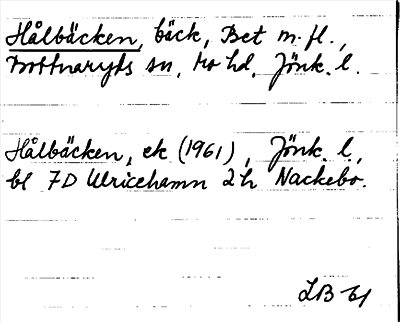 Hålbäcken, bäck, Bet m. fl.,
Bottnaryds sn, Mo hd, Jönk. l.
Hålbäcken, ek (1961), Jönk. l.,
bl 7D Ulricehamn 2h Nackebo.
LB-61